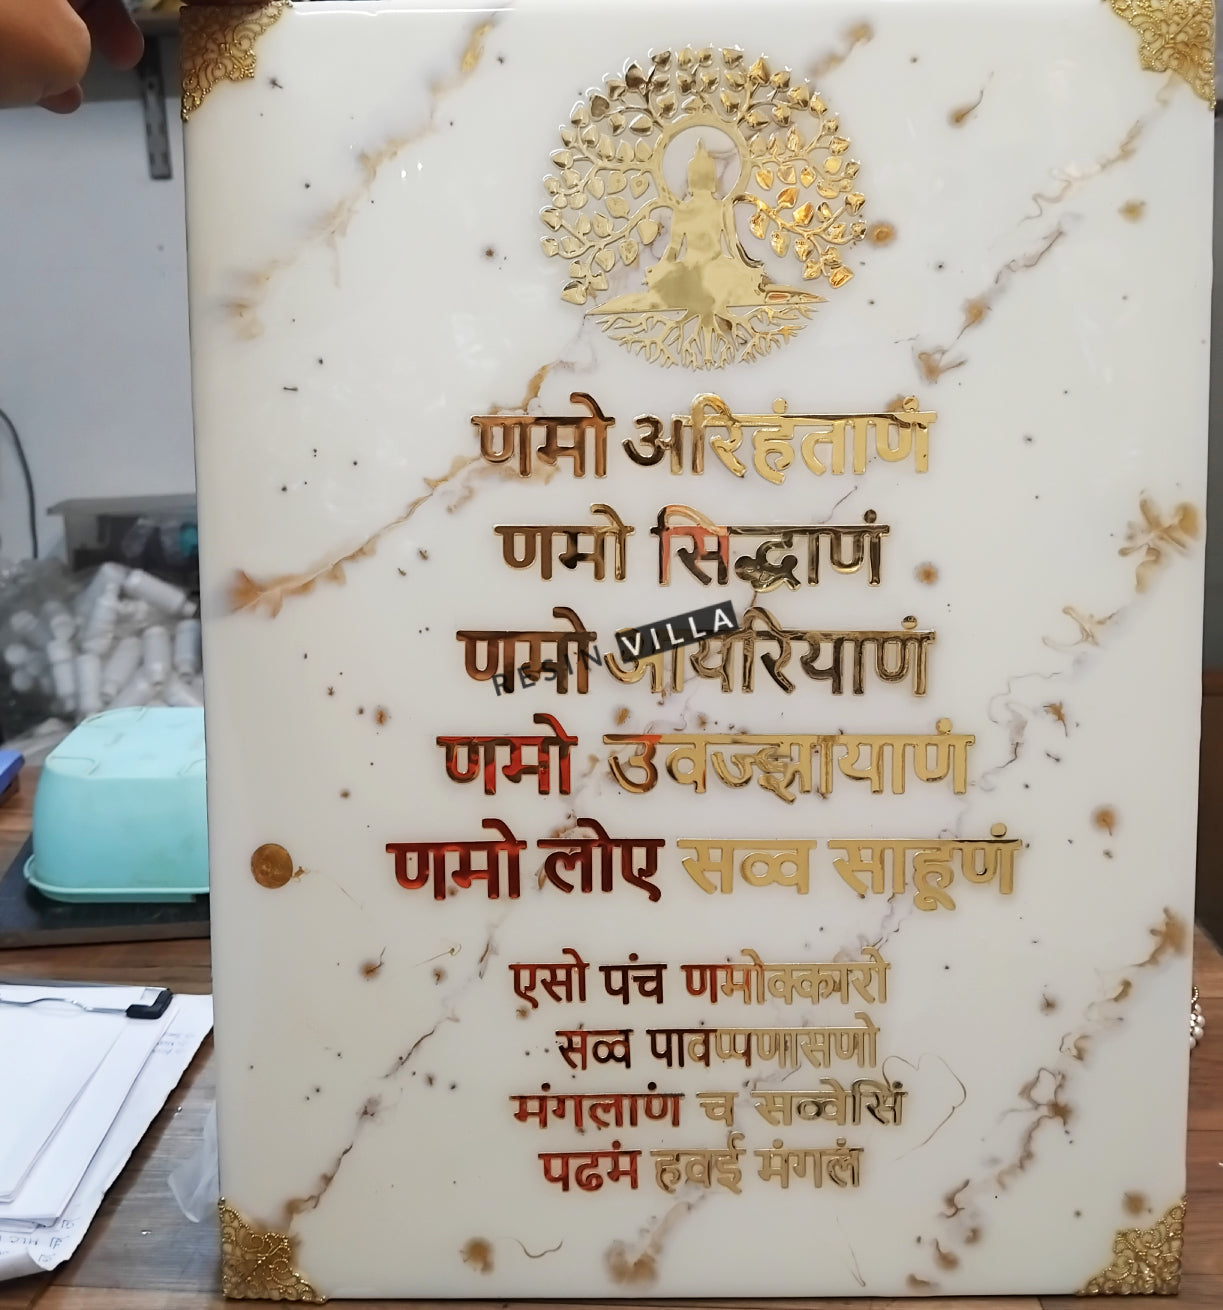 णमो अरिहंताणं
णमो सिद्धाणं
णमो आयरियाणं
RESIN VILLA
णमो उवज्झायाणं
णमो लोए सव्व साहूणं
एसो पंच णमोक्कारो
सव्व पावप्पणासणो
मंगलाणं च सव्वेसिं
पढमं हवई मंगलं